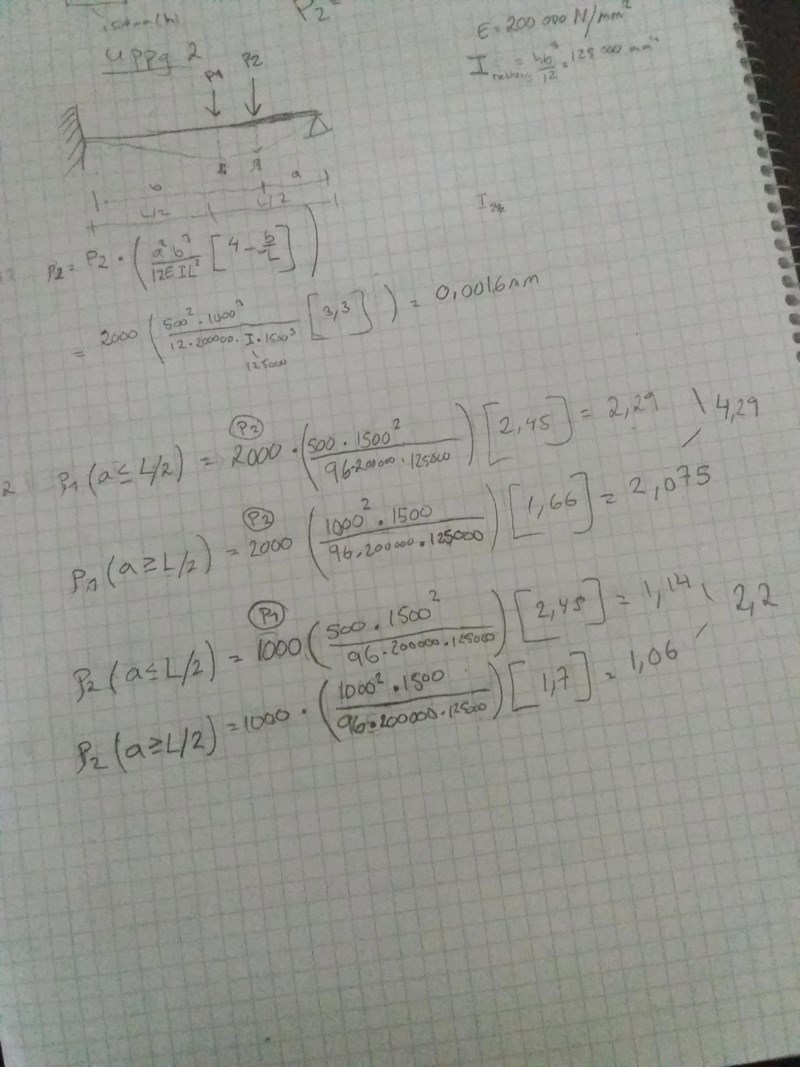 150mm(h)
P2=
E = 200 000 N/mm²
I = hb³/12 = 125 000 mm⁴
uppg 2
P1 P2
b a
L/2 L/2
P2 = P2 · (a²b³/12EIL³ [4 - b/L])
= 2000 (500² · 1000³/12 · 200000 · I · 1500³ [3,3]) = 0,0016mm
125000
2
P1 (a ≤ L/2) = 2000 · (500 · 1500²/96 · 200000 · 125000) [2,45] = 2,29 \ 4,29
P2
P1 (a ≥ L/2) = 2000 (1000² · 1500/96 · 200000 · 125000) [1,66] = 2,075 /
P1
P2 (a ≤ L/2) = 1000 (500 · 1500²/96 · 200000 · 125000) [2,45] = 1,14 \ 2,2
P2 (a ≥ L/2) = 1000 · (1000² · 1500/96 · 200000 · 125000) [1,7] = 1,06 /